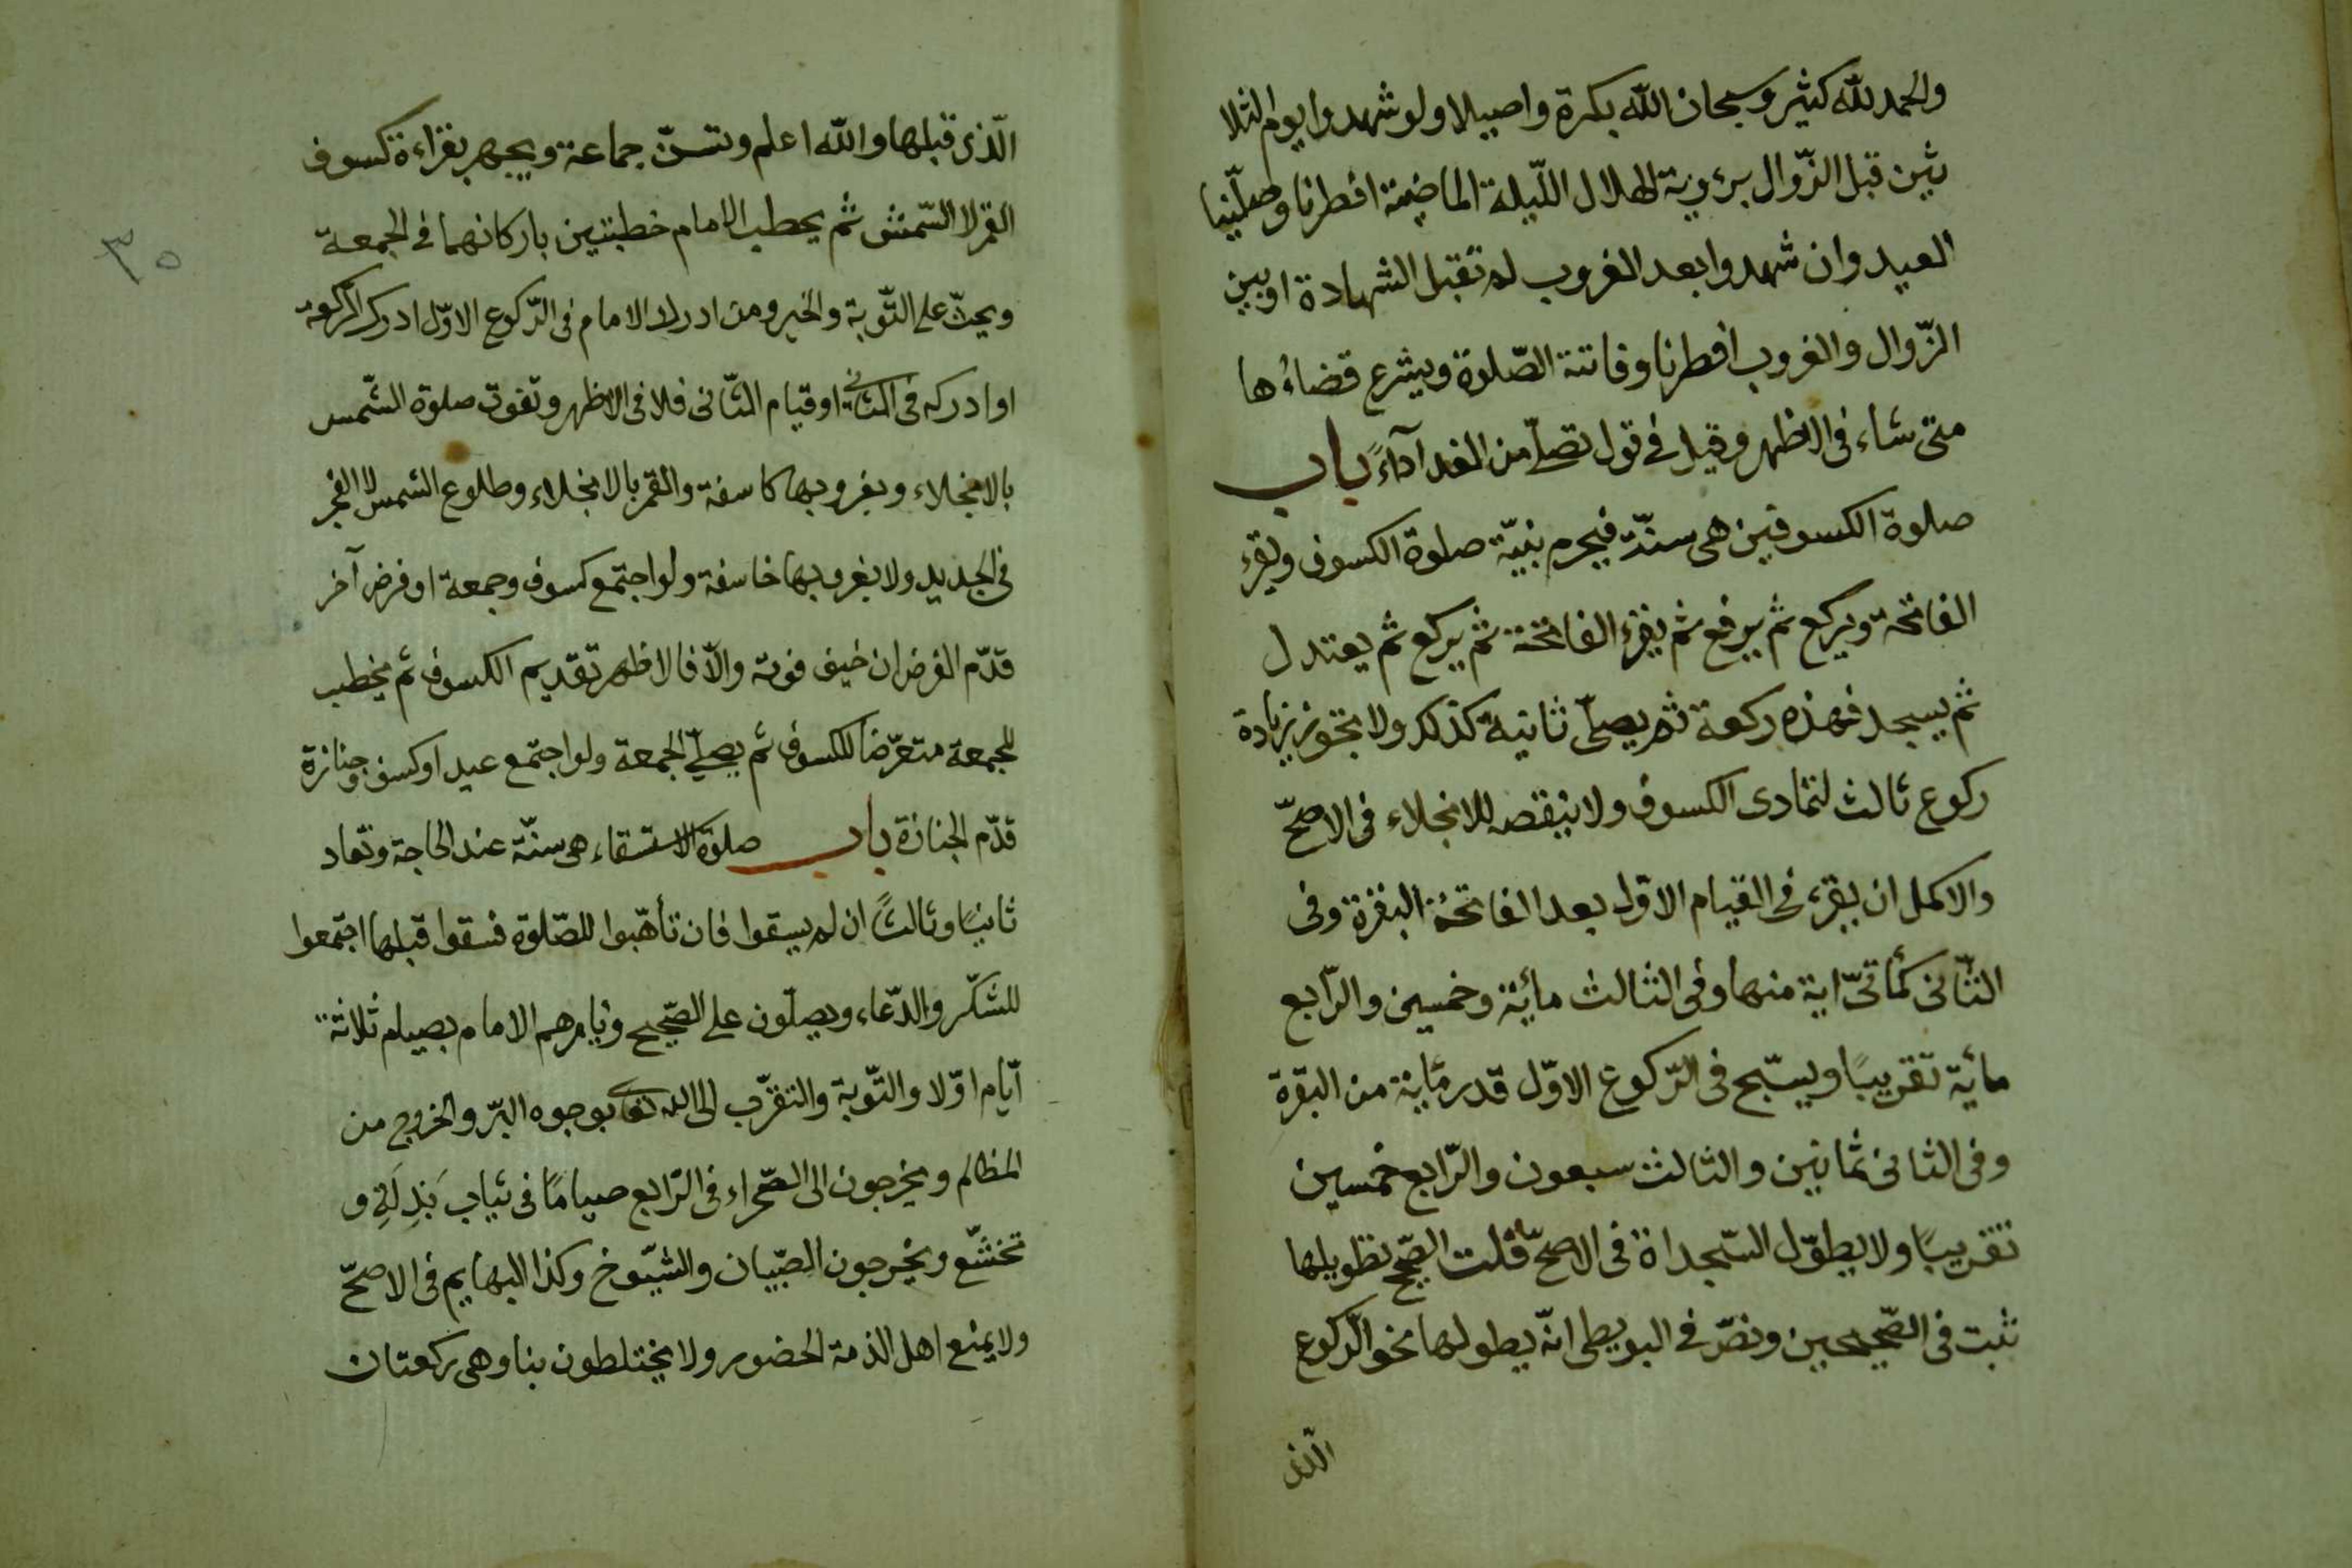 والحمد للّه كثير وسبحان اللّه بكرة واصيلا ولو شهدوا يوم الثلا
ثين قبل الزّوال برؤية الهلال اللّيلة الماضية افطرنا وصلّينا
العيد وان شهدوا بعد الغروب لم تقبل الشهادة او بين
الزّوال والغروب افطرنا وفاتتة الصّلوة ويشرع قضاءُها
متى شاء فى الاظهر وقيل فى قول تصلّى من الغد آداءً باب
صلوة الكسوفين هى سنّة فيحرم بنيّة صلوة الكسوف ويقرء
الفاتحة ويركع ثم يرفع ثم يقرء الفاتحة ثم يركع ثم يعتدل
ثم يسجد فهذه ركعة ثم يصلّى ثانية كذلك ولا تجوز زيادة
ركوع ثالث لتمادى الكسوف ولا ينقصه للانجلاء فى الاصحّ
والاكمل ان يقرء فى القيام الاوّل بعد الفاتحة البقرة وفى
الثّانى كمأتىّ اية منها وفى الثالث مائة وخمسين والرّابع
مائة تقريبًا ويسبّح فى الرّكوع الاوّل قدر مائة من البقرة
وفى الثانى ثمانين والثالث سبعون والرّابع خمسين
تقريبًا ولا يطوّل السّجداة فى الاصحّ قلت الصّحيح تطويلها
ثبت فى الصّحيحين ونصّ فى البويطى انّه يطولها نحو الرّكوع
الّذى
٣٥
الّذى قبلها واللّه اعلم وتسنّ جماعة ويجهر بقراءة كسوف
القمر لا الشّمش ثم يحطب الامام خطبتين باركانهما فى الجمعة
ويحثّ على التّوبة والخير ومن ادرك الامام فى الرّكوع الاوّل ادرك الركعة
او ادركه فى الثانى او قيام الثّانى فلا فى الاظهر وتفوت صلوة الشّمس
بالانجلاء وبغروبها كاسفة والقمر بالانجلاء وطلوع الشمس لا الفجر
فى الجديد ولا بغروبها خاسفة ولو اجتمع كسوف وجمعة او فرض آخر
قدّم الفرض ان خيف فوته والّا فالاظهر تقديم الكسوف ثم يخطب
للجمعة متعرّضا للكسوف ثم يصلّى الجمعة ولو اجتمع عيد او كسف وجنازة
قدّم الجنازة باب صلوة الاستسقاء هى سنّة عند الحاجة وتعاد
ثانيًا وثالثًا ان لم يسقوا فان تأهّبوا للصّلوة فسقوا قبلها اجتمعوا
للشكّر والدّعاء ويصلّون على الصّحيح ويامرهم الامام بصيام ثلاثة
ايّام اوّلا والتّوبة والتقرّب الى اللّه تعالى بوجوه البرّ والخروج من
المظالم ويخرجون الى الصّحراء فى الرّابع صيامًا فى ثياب بَذِلَةٍ و
تخشّع ويخرجون الصّبيان والشّيوخ وكذا البهايم فى الاصحّ
ولا يمنع اهل الذمة الحضور ولا يختلطون بنا وهى ركعتان